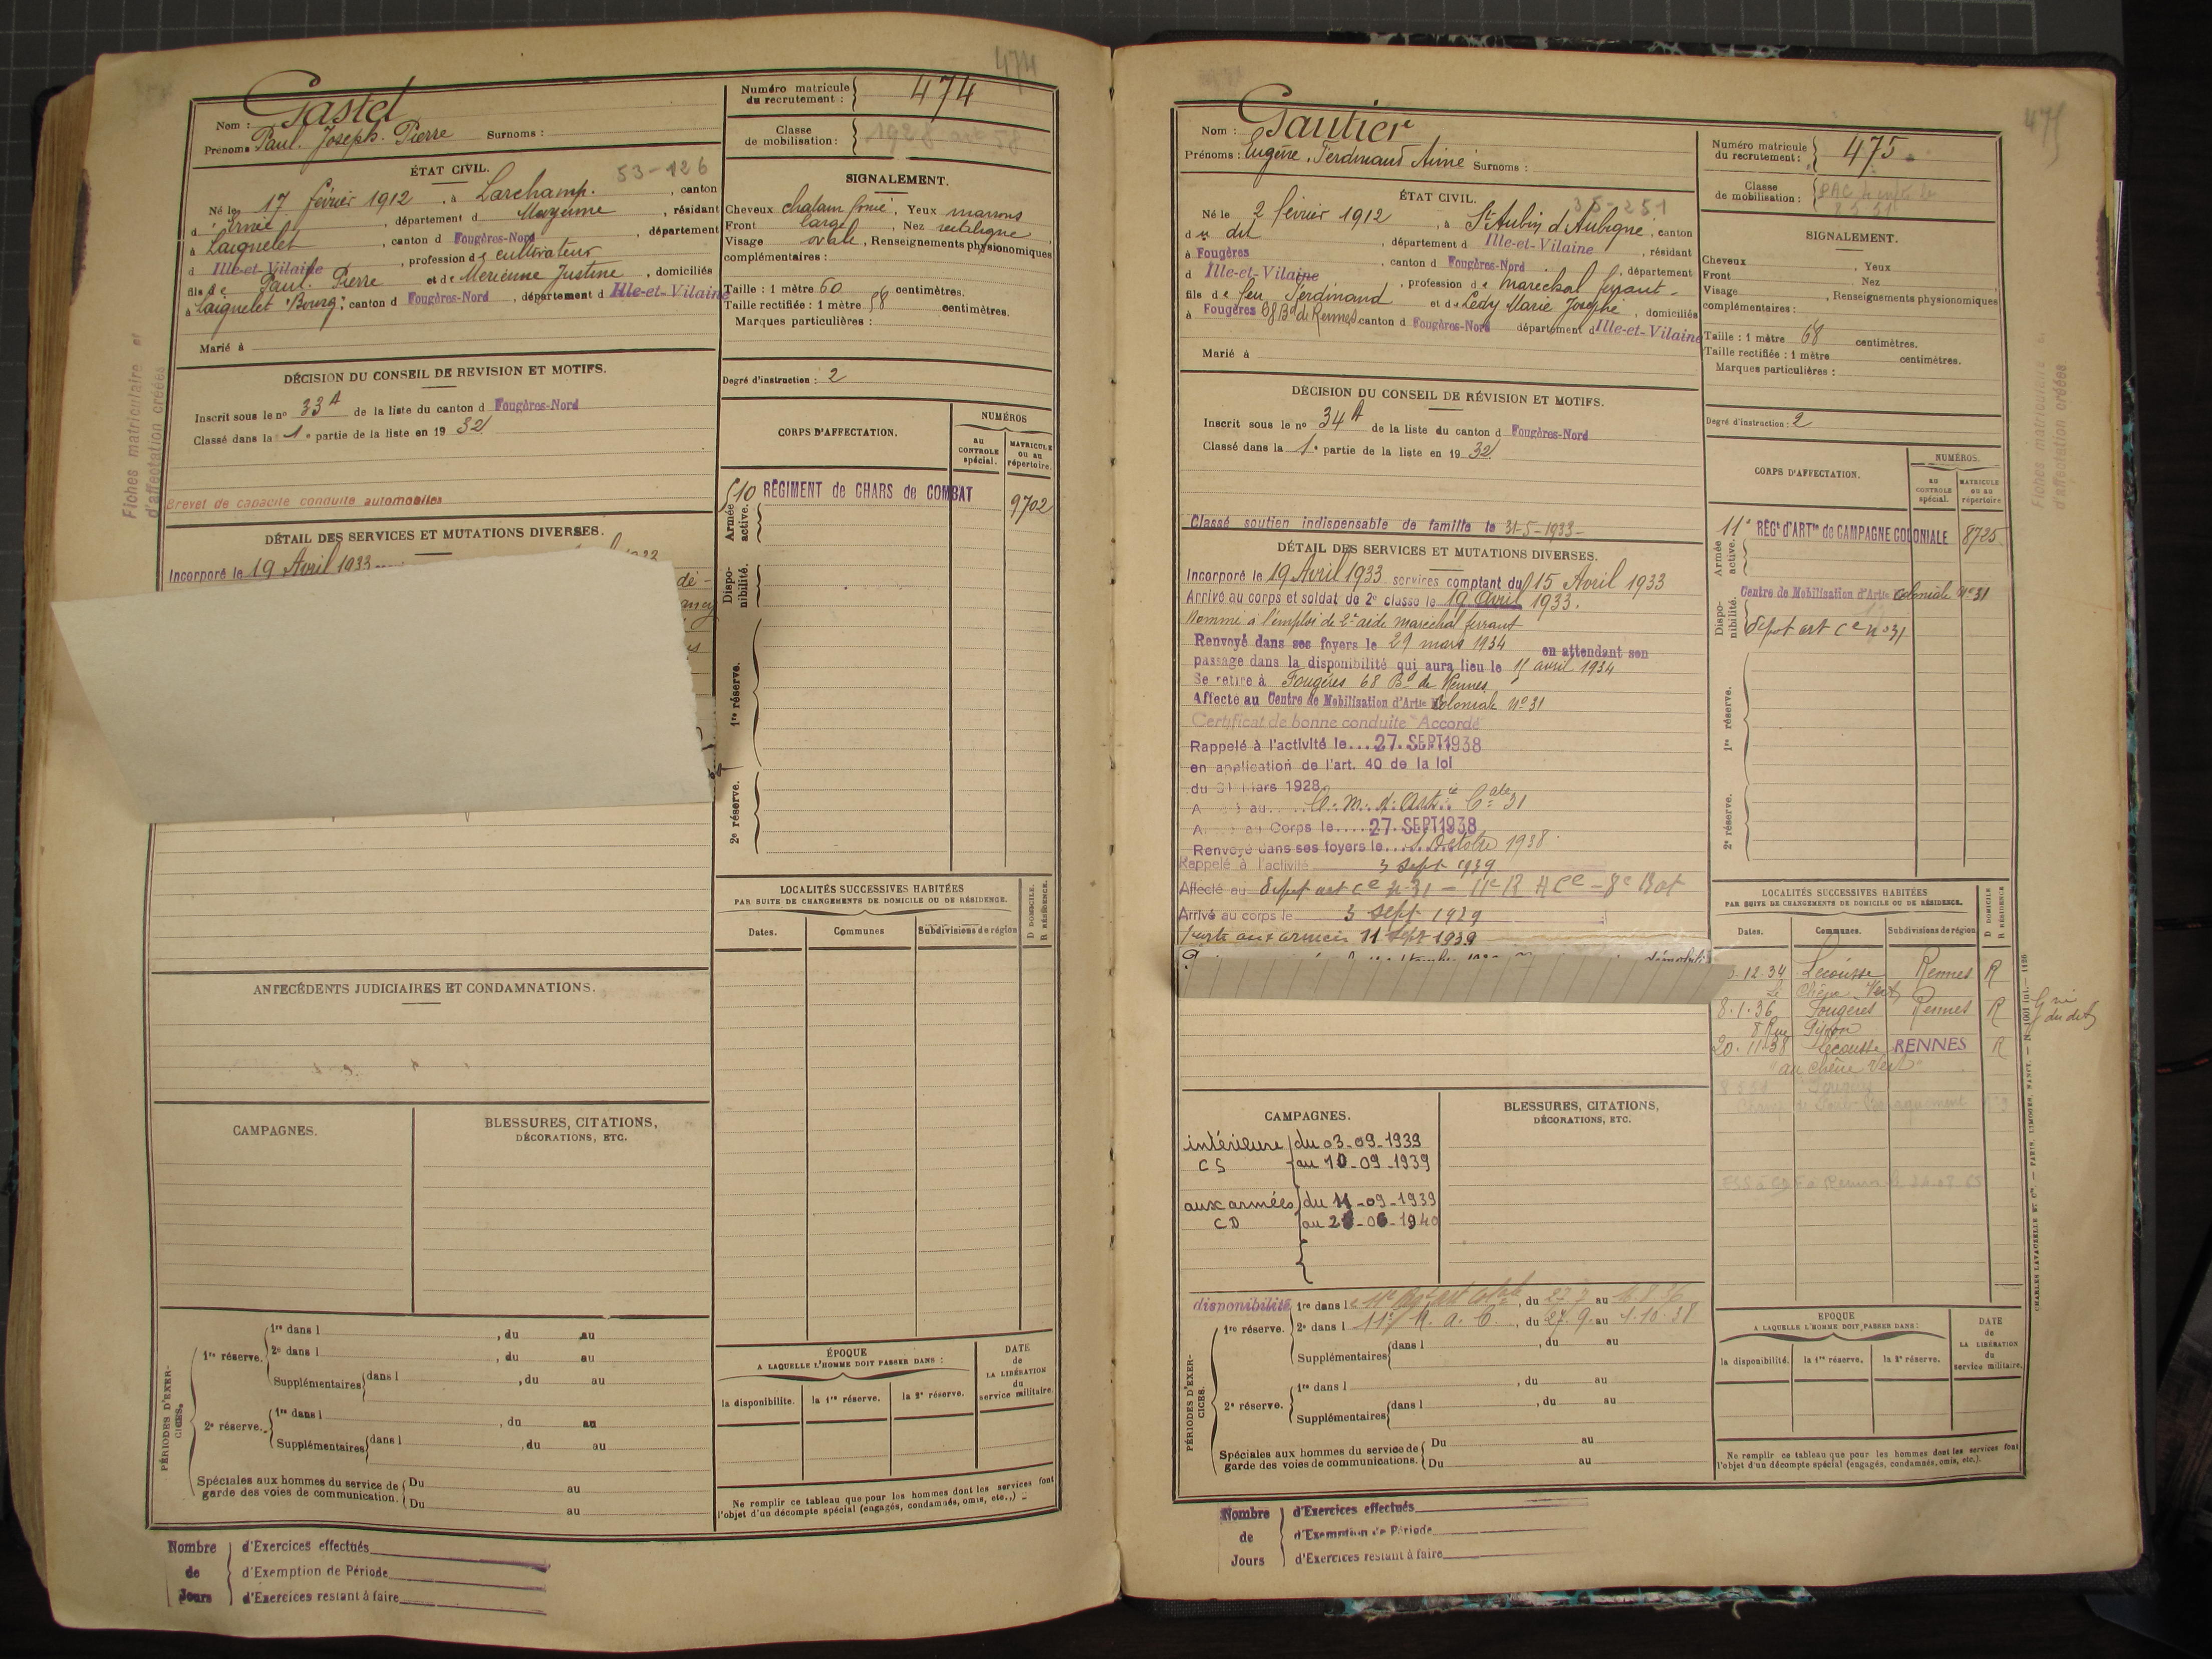 474
Nom : Gastel
Prénoms Paul. Joseph. Pierre Surnoms :
Numéro matricule du recrutement : 474
Classe de mobilisation : 1928
ÉTAT CIVIL.
53-126
Né le 17 février 1912, à Larchamp, canton
d'Ernée, département d Mayenne, résidant
à Laignelet, canton d Fougères-Nord, département
d Ille-et-Vilaine, profession de cultivateur
fils de Paul. Pierre et de Merienne Justine, domiciliés
à Laignelet "Bourg", canton d Fougères-Nord, département d Ille-et-Vilaine
Marié à
SIGNALEMENT.
Cheveux chatain foncé, Yeux marrons
Front large, Nez rectiligne
Visage ovale, Renseignements physionomiques
complémentaires :
Taille : 1 mètre 60 centimètres.
Taille rectifiée : 1 mètre 58 centimètres.
Marques particulières :
Degré d'instruction : 2
DÉCISION DU CONSEIL DE REVISION ET MOTIFS.
Inscrit sous le nº 33 A de la liste du canton d Fougères-Nord
Classé dans la 1e partie de la liste en 1932
Brevet de capacité conduite automobiles
Fiches matriculaire et
d'affectation créées
DÉTAIL DES SERVICES ET MUTATIONS DIVERSES.
Incorporé le 19 Avril 1933
CORPS D'AFFECTATION.
NUMÉROS
AU CONTROLE spécial.
MATRICULE OU AU répertoire.
Armée active.
510 RÉGIMENT de CHARS de COMBAT 9702
Disponibilité.
1re réserve.
2e réserve.
LOCALITÉS SUCCESSIVES HABITÉES
PAR SUITE DE CHANGEMENTS DE DOMICILE OU DE RÉSIDENCE.
D DOMICILE. R RÉSIDENCE.
Dates. Communes Subdivisions de région
ANTÉCÉDENTS JUDICIAIRES ET CONDAMNATIONS.
CAMPAGNES.
BLESSURES, CITATIONS,
DÉCORATIONS, ETC.
PÉRIODES D'EXERCICES.
1re réserve. 1re dans l , du au
2e dans l , du au
Supplémentaires dans l , du au
2e réserve. 1re dans l , du au
Supplémentaires dans l , du au
Spéciales aux hommes du service de garde des voies de communication. Du au
Du au
ÉPOQUE
A LAQUELLE L'HOMME DOIT PASSER DANS :
la disponibilité. la 1re réserve. la 2e réserve.
DATE de LA LIBÉRATION du service militaire.
Ne remplir ce tableau que pour les hommes dont les services font
l'objet d'un décompte spécial (engagés, condamnés, omis, etc.,)
Nombre de Jours
d'Exercices effectués
d'Exemption de Période
d'Exercices restant à faire
475
Nom : Gautier
Prénoms : Eugène, Ferdinand Aimé Surnoms :
Numéro matricule du recrutement : 475
Classe de mobilisation :
ÉTAT CIVIL.
35-251
Né le 2 février 1912, à St Aubin d'Aubigné, canton
du dit, département d Ille-et-Vilaine, résidant
à Fougères, canton d Fougères-Nord, département
d Ille-et-Vilaine, profession de maréchal ferrant
fils de feu Ferdinand et de Ledy Marie Josephe, domiciliés
à Fougères 68 Bd de Rennes canton d Fougères-Nord département d Ille-et-Vilaine
Marié à
SIGNALEMENT.
Cheveux , Yeux
Front , Nez
Visage , Renseignements physionomiques
complémentaires :
Taille : 1 mètre 68 centimètres.
Taille rectifiée : 1 mètre centimètres.
Marques particulières :
Degré d'instruction : 2
DÉCISION DU CONSEIL DE RÉVISION ET MOTIFS.
Inscrit sous le nº 34 A de la liste du canton d Fougères-Nord
Classé dans la 1e partie de la liste en 1932
Classé soutien indispensable de famille le 31-5-1933
DÉTAIL DES SERVICES ET MUTATIONS DIVERSES.
Incorporé le 19 Avril 1933 services comptant du 15 Avril 1933
Arrivé au corps et soldat de 2e classe le 19 Avril 1933.
Nommé à l'emploi de 2e aide maréchal ferrant
Renvoyé dans ses foyers le 29 mars 1934 en attendant son
passage dans la disponibilité qui aura lieu le 15 avril 1934
Se retire à Fougères 68 Bd de Rennes
Affecté au Centre de Mobilisation d'Artie Coloniale nº 31
Certificat de bonne conduite "Accordé"
Rappelé à l'activité le 27 SEPT 1938
en application de l'art. 40 de la loi
du 31 Mars 1928
A au C. m. d'Artie Cale 31
A au Corps le 27 SEPT 1938
Renvoyé dans ses foyers le 1 Octobre 1938
Rappelé à l'activité 3 sept 1939
Affecté au dépot art Ce nº 31 - 11e R A Ce - 8e Bat
Arrivé au corps le 3 sept 1939
Parti aux armées 11 sept 1939
CORPS D'AFFECTATION.
NUMÉROS.
AU CONTROLE spécial.
MATRICULE OU AU répertoire
Armée active.
11e RÉGt d'ARTie de CAMPAGNE COLONIALE 8725
Disponibilité.
Centre de Mobilisation d'Artie Coloniale Nº 31
dépot art Ce nº 31
1re réserve.
2e réserve.
Fiches matriculaire et
d'affectation créées
LOCALITÉS SUCCESSIVES HABITÉES
PAR SUITE DE CHANGEMENTS DE DOMICILE OU DE RÉSIDENCE.
D DOMICILE R RÉSIDENCE
Dates. Communes. Subdivisions de région
12.34 Lecousse Rennes R
Le Chêne Vert
8.1.36 Fougères Rennes R
8 Rue Pinson
20.11.38 Lecousse RENNES R
"au chêne Vert"
Gvi du dit
CAMPAGNES.
intérieure du 03-09-1939
CS au 10-09-1939
aux armées du 11-09-1939
CD au 2-06-1940
BLESSURES, CITATIONS,
DÉCORATIONS, ETC.
PÉRIODES D'EXERCICES.
disponibilité 1re dans le 11e Régt art Colale, du 22.7 au 16.8.36
1re réserve. 2e dans l 11e R. a. C., du 27.9. au 1.10.38
Supplémentaires dans l , du au
2e réserve. 1re dans l , du au
Supplémentaires dans l , du au
Spéciales aux hommes du service de garde des voies de communications. Du au
Du au
EPOQUE
A LAQUELLE L'HOMME DOIT PASSER DANS :
la disponibilité. la 1re réserve. la 2e réserve.
DATE de LA LIBÉRATION du service militaire.
Ne remplir ce tableau que pour les hommes dont les services font
l'objet d'un décompte spécial (engagés, condamnés, omis, etc.).
CHARLES LAVAUZELLE ET Cie. — PARIS, LIMOGES, NANCY.
Nombre de Jours
d'Exercices effectués
d'Exemption de Période
d'Exercices restant à faire